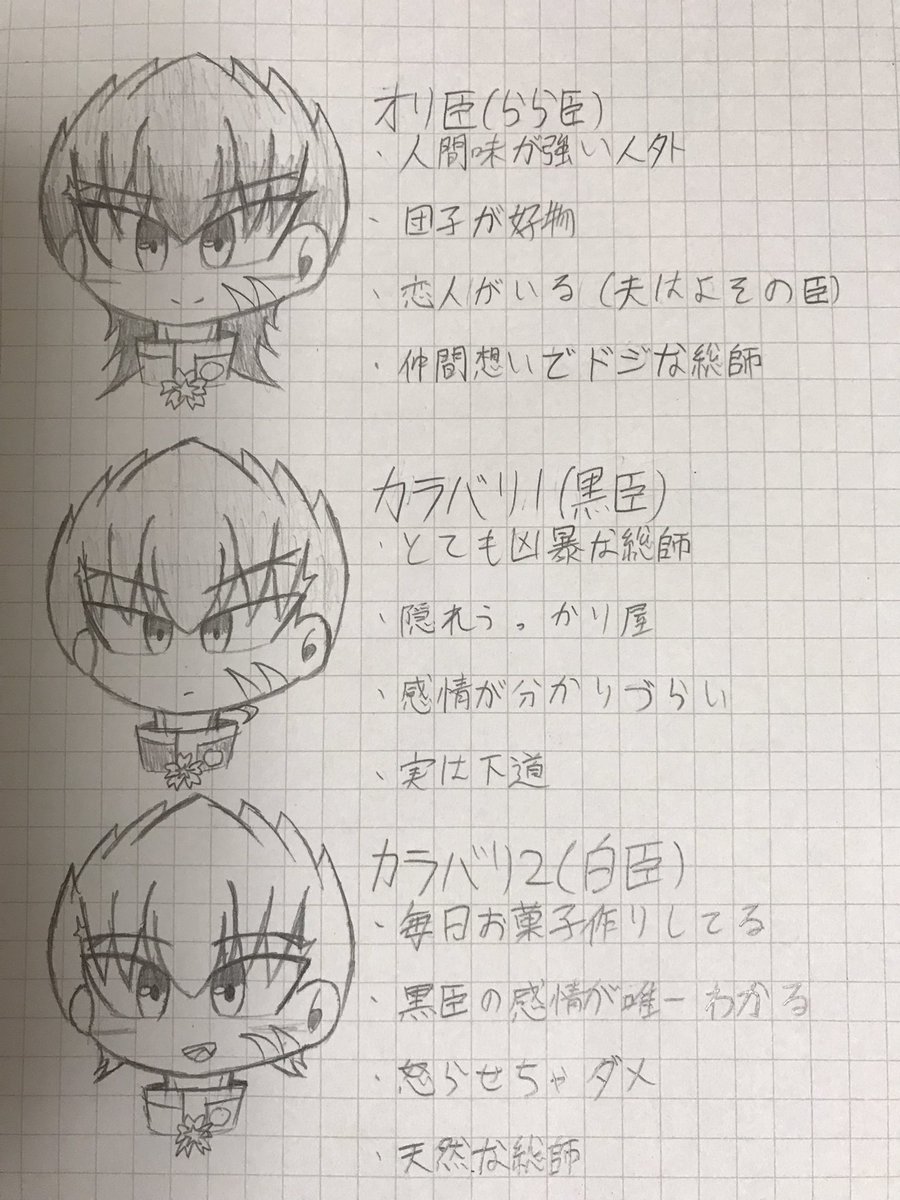 オリ臣(らら臣)
・人間味が強い人外
・団子が好物
・恋人がいる(夫はよその臣)
・仲間想いでドジな総師
カラバリ1(黒臣)
・とても凶暴な総師
・隠れうっかり屋
・感情が分かりづらい
・実は下道
カラバリ2(白臣)
・毎日お菓子作りしてる
・黒臣の感情が唯一わかる
・怒らせちゃダメ
・天然な総師